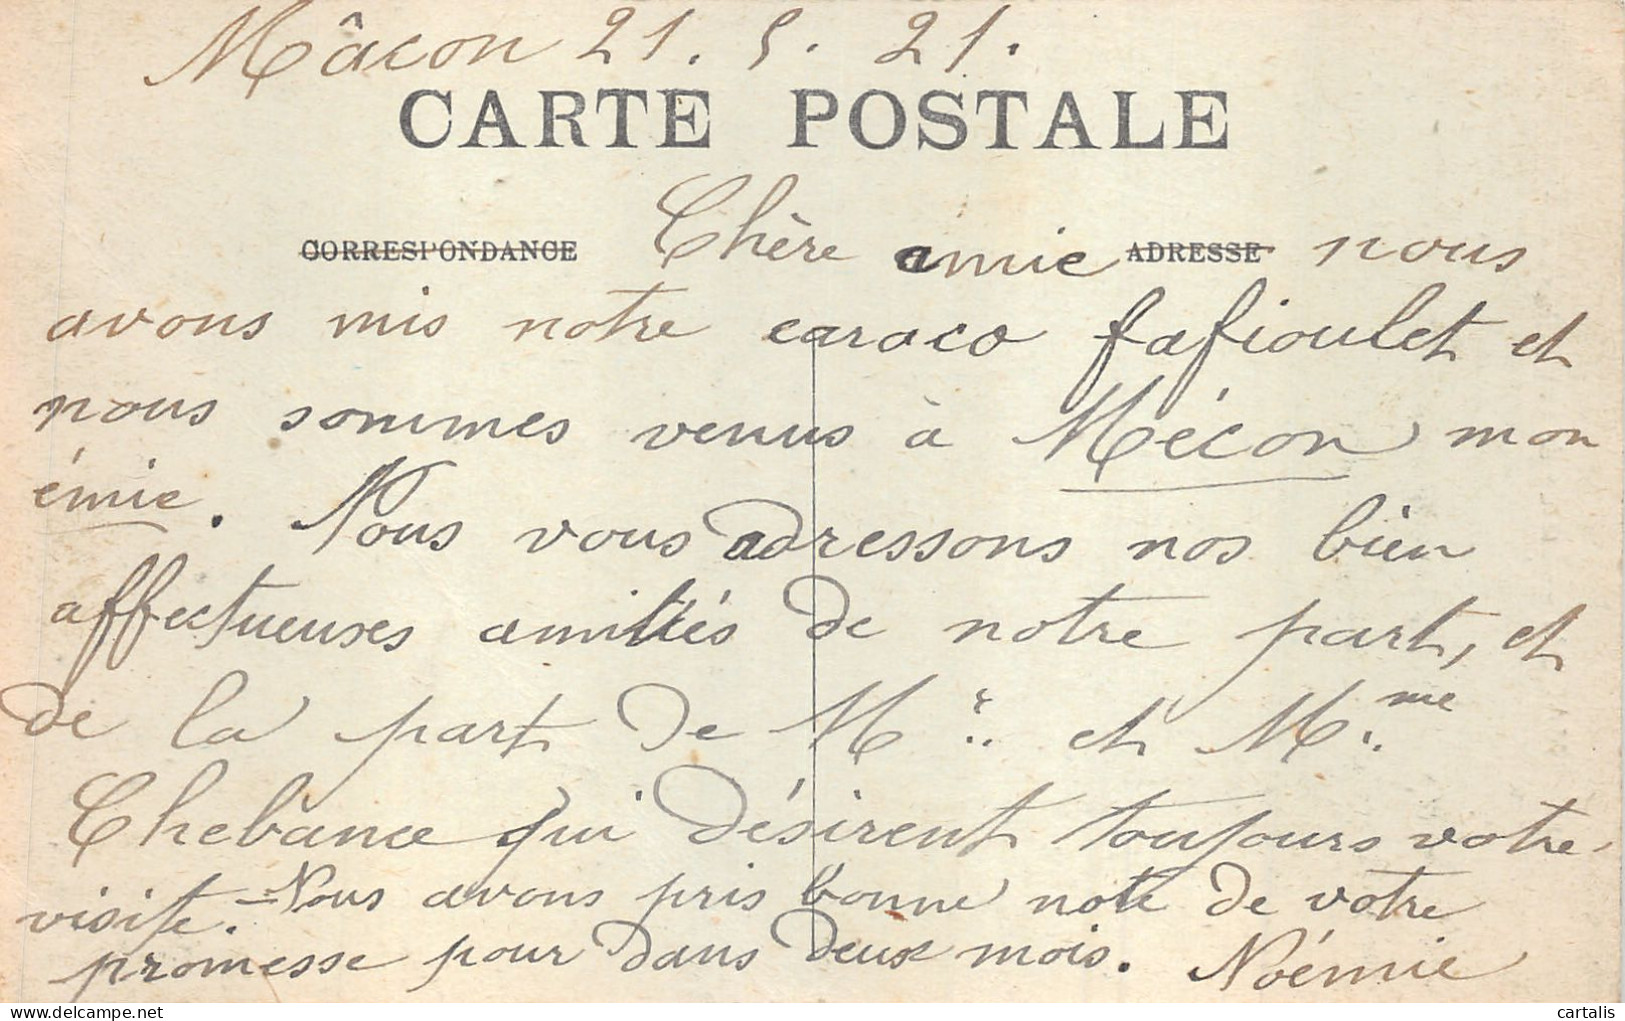 Mâcon 21. 5. 21.
CARTE POSTALE
CORRESPONDANCE Chère amie ADRESSE nous
avons mis notre caraco fafioulet et
nous sommes venus à Mécon mon
émie. Nous vous adressons nos bien
affectueuses amitiés de notre part, et
de la part de Mr. et Mme.
Chebance qui désirent toujours votre
visite. - Nous avons pris bonne note de votre
promesse pour dans deux mois. Noémie
delcampe.com
cartalis